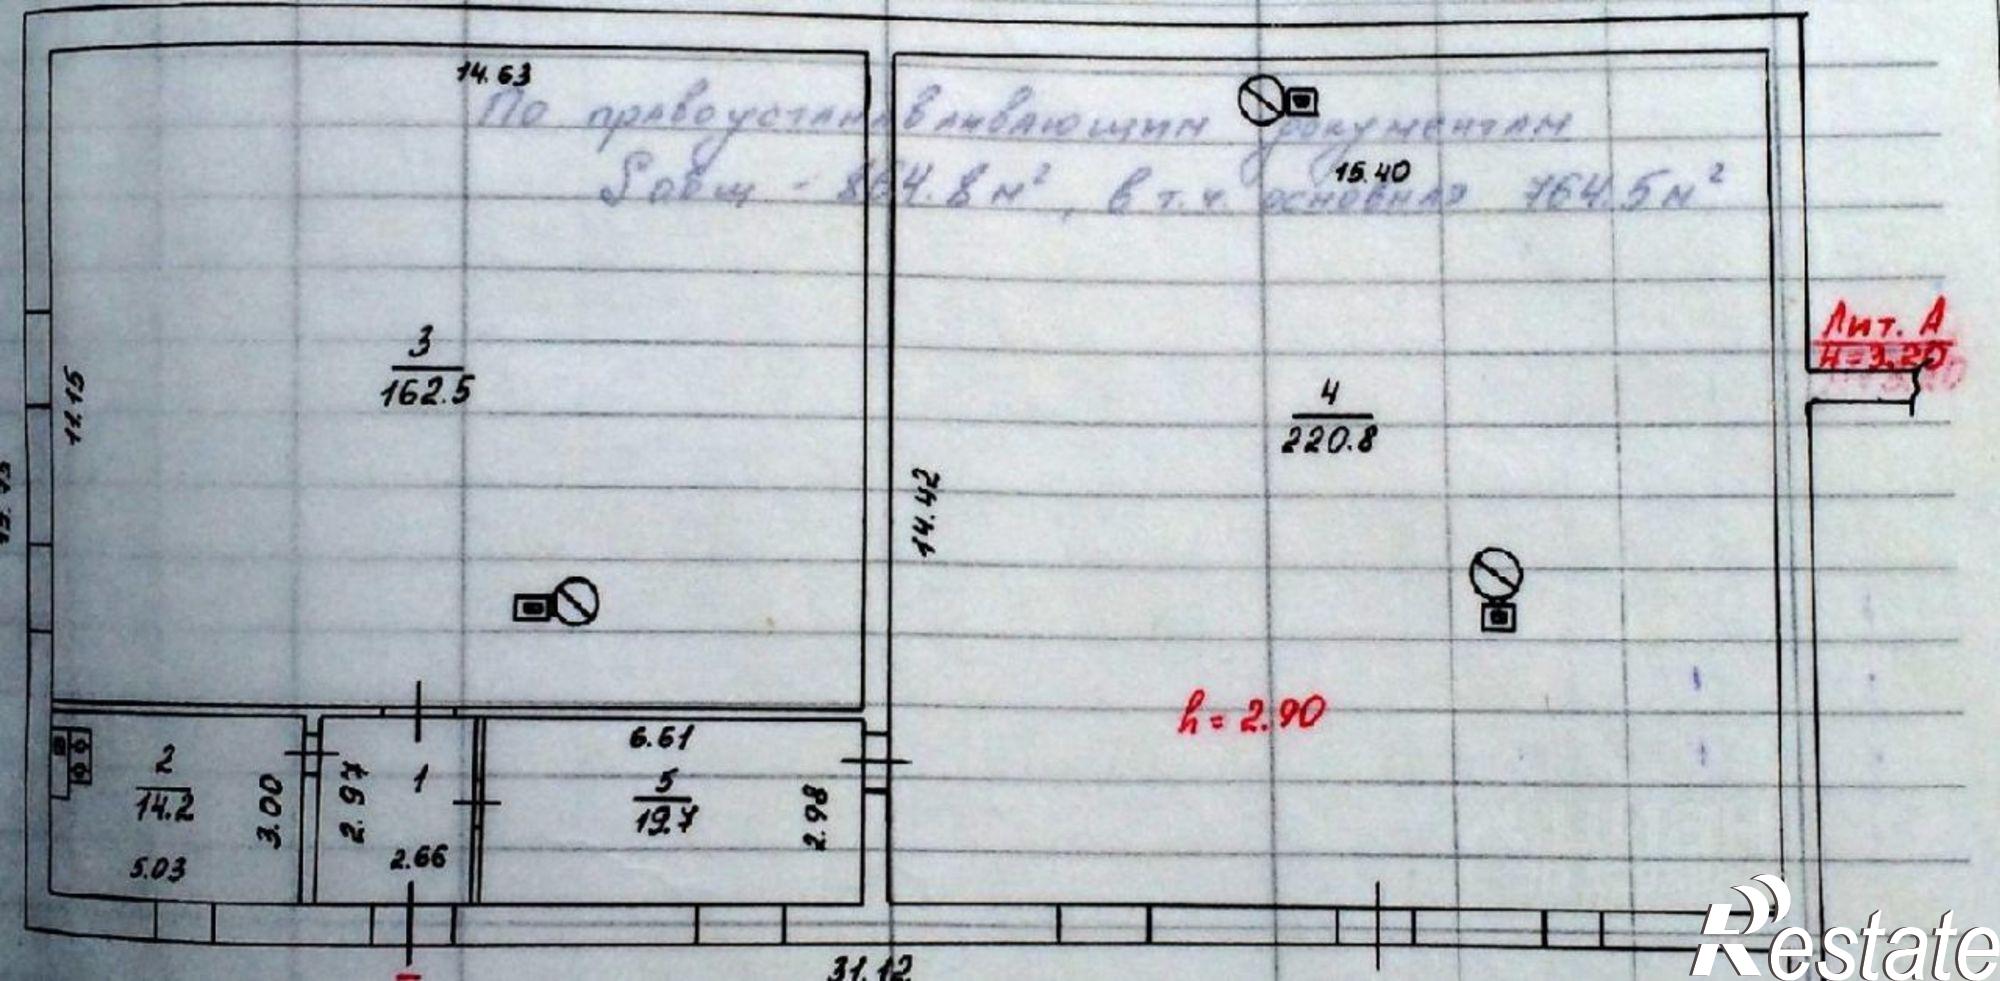 14.63
По правоустанавливающим документам
Sобщ - 864.8 м², в т.ч. основная 764.5 м²
15.40
3
162.5
11.15
4
220.8
14.42
Лит. А
H=3.20
h=2.90
2
14.2
3.00
5.03
2.97
1
2.66
6.61
5
19.7
2.98
I
31.12
Restate